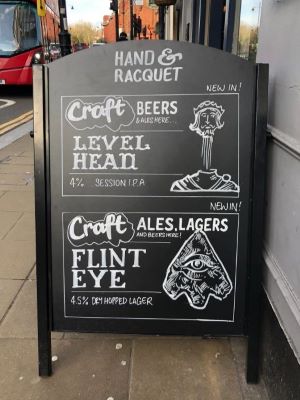 HAND &
RACQUET
NEW IN!
Craft BEERS
& ALES HERE...
LEVEL
HEAD
4% SESSION I.P.A
NEW IN!
Craft ALES, LAGERS
AND BEERS HERE!
FLINT
EYE
4.5% DRY HOPPED LAGER